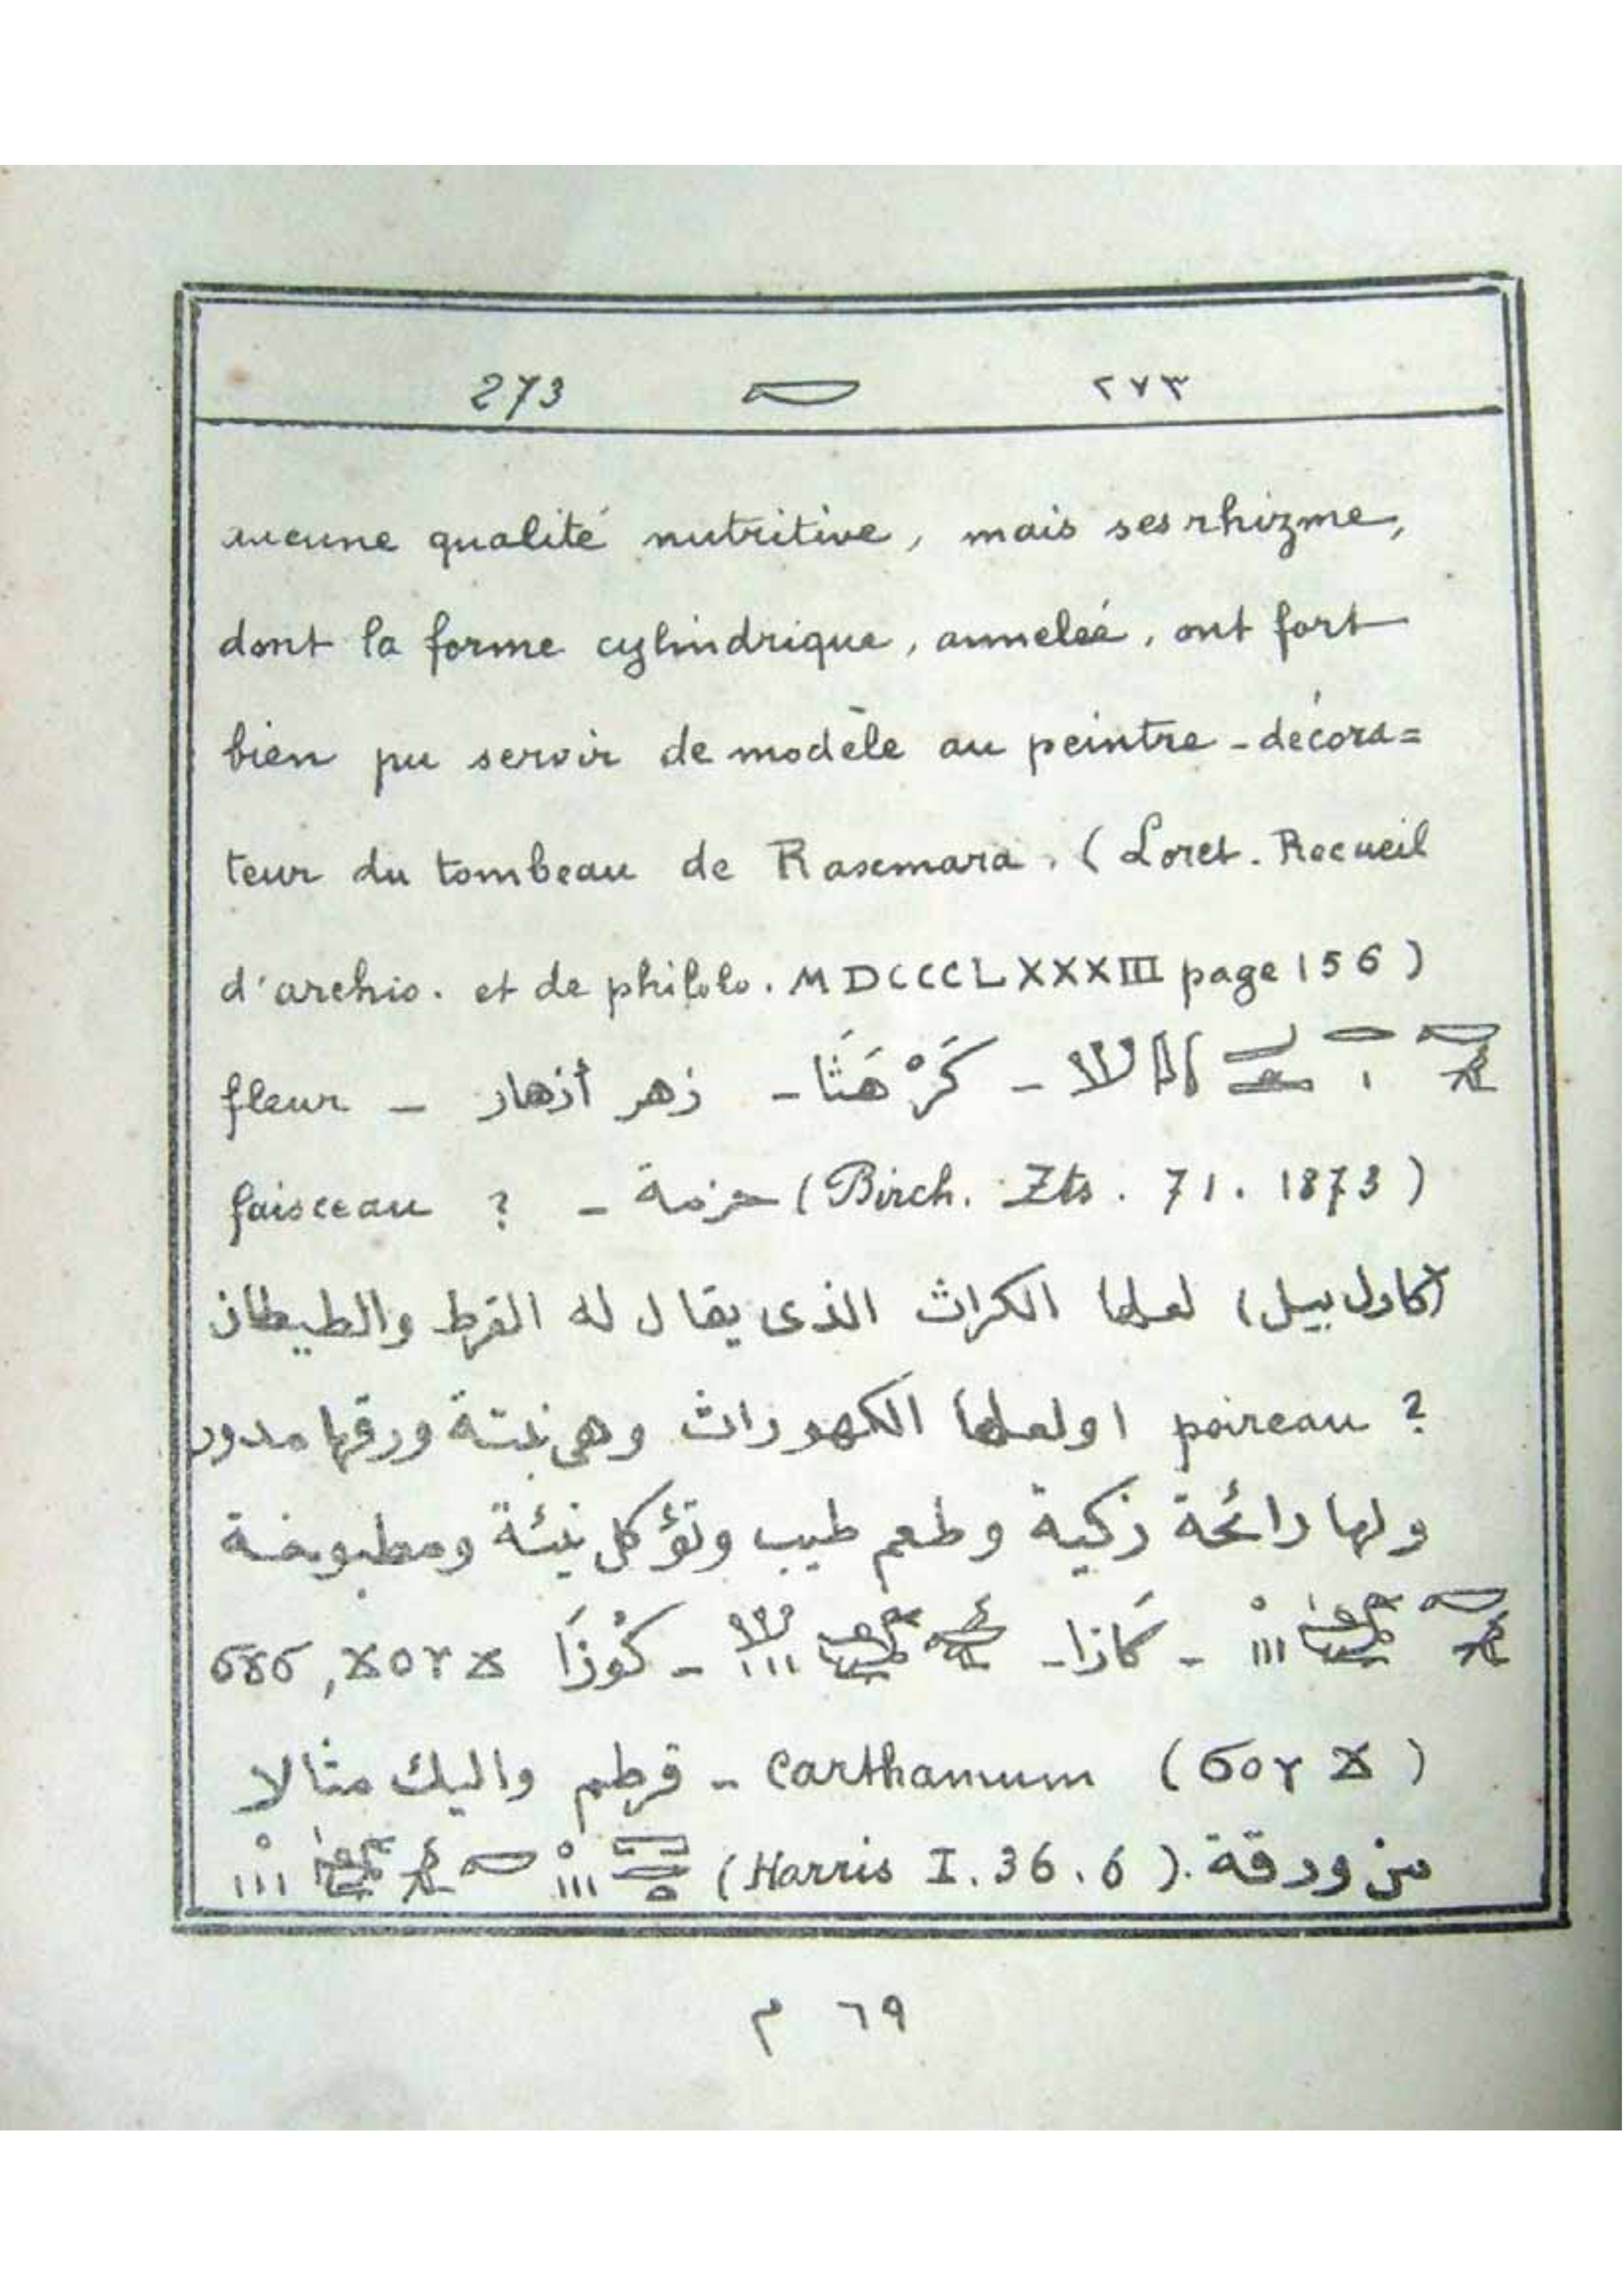 273 ٢٧٣
aucune qualité nutritive, mais ses rhizme,
dont la forme cylindrique, anneleé, ont fort
bien pu servir de modèle au peintre-décora=
teur du tombeau de Rasemara. (Loret. Recueil
d'archio. et de philolo. MDCCCLXXXIII page 156)
- كَرْهَثَا - زهر أزهار - fleur
faisceau ? - حزمة (Birch. Zts. 71. 1873)
لعلها الكراث الذى يقال له القرط والطيطان
poireau ? او لعلها الكهوراث وهى نبتة ورقها مدور
ولها رائحة زكية وطعم طيب وتؤكل نيئة ومطبوخة
- كَازا - - كُوزَا
carthamum - قرطم واليك مثالا
من ورقة (Harris I. 36. 6)
٦٩ م